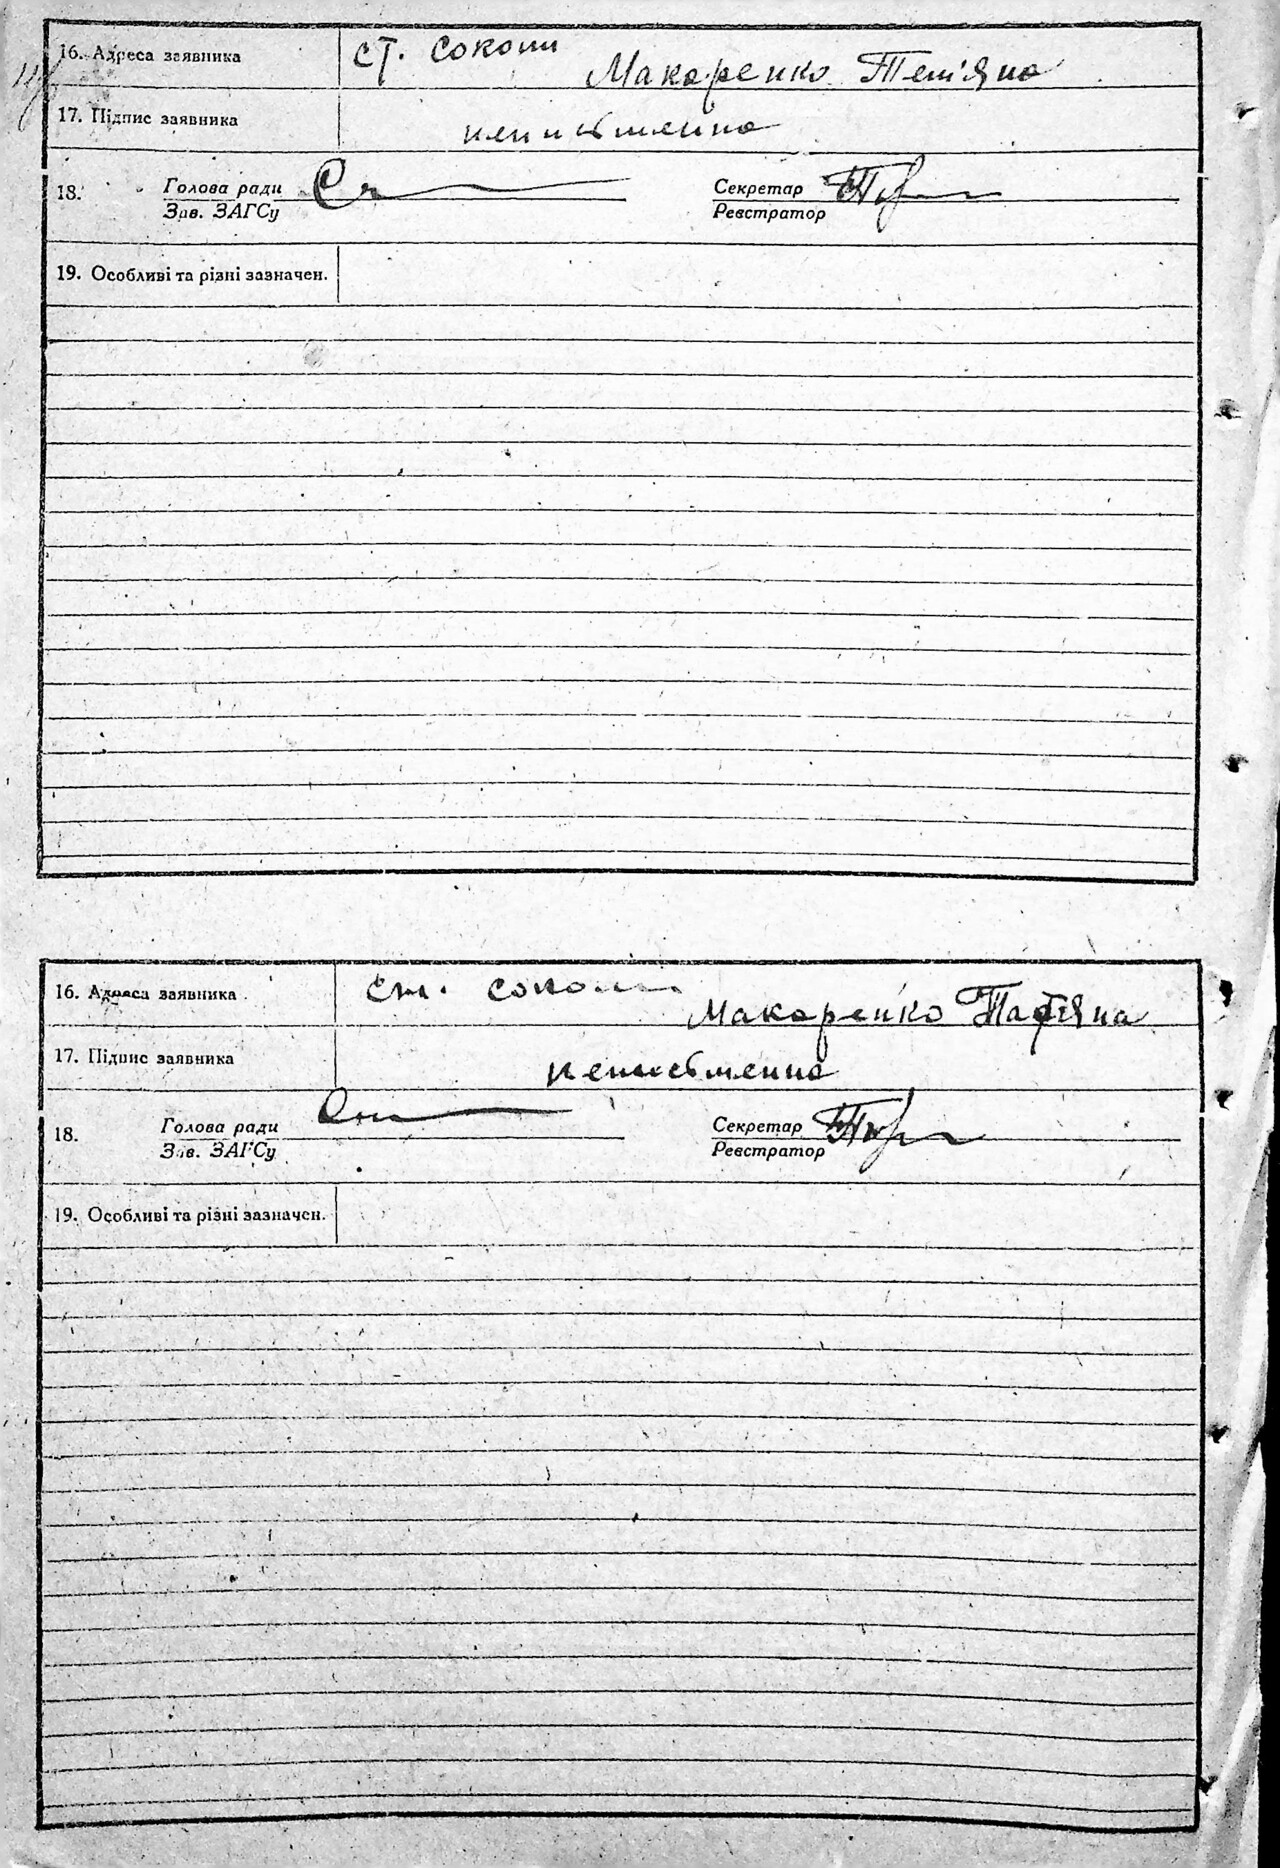 16. Адреса заявника ст. Соколи
Макаренко Тетіяна
17. Підпис заявника неписьменна
18. Голова ради Секретар
Зав. ЗАГСу Реєстратор
19. Особливі та різні зазначен.
16. Адреса заявника ст. Соколи
Макаренко Татіяна
17. Підпис заявника неписьменна
18. Голова ради Секретар
Зав. ЗАГСу Реєстратор
19. Особливі та різні зазначен.